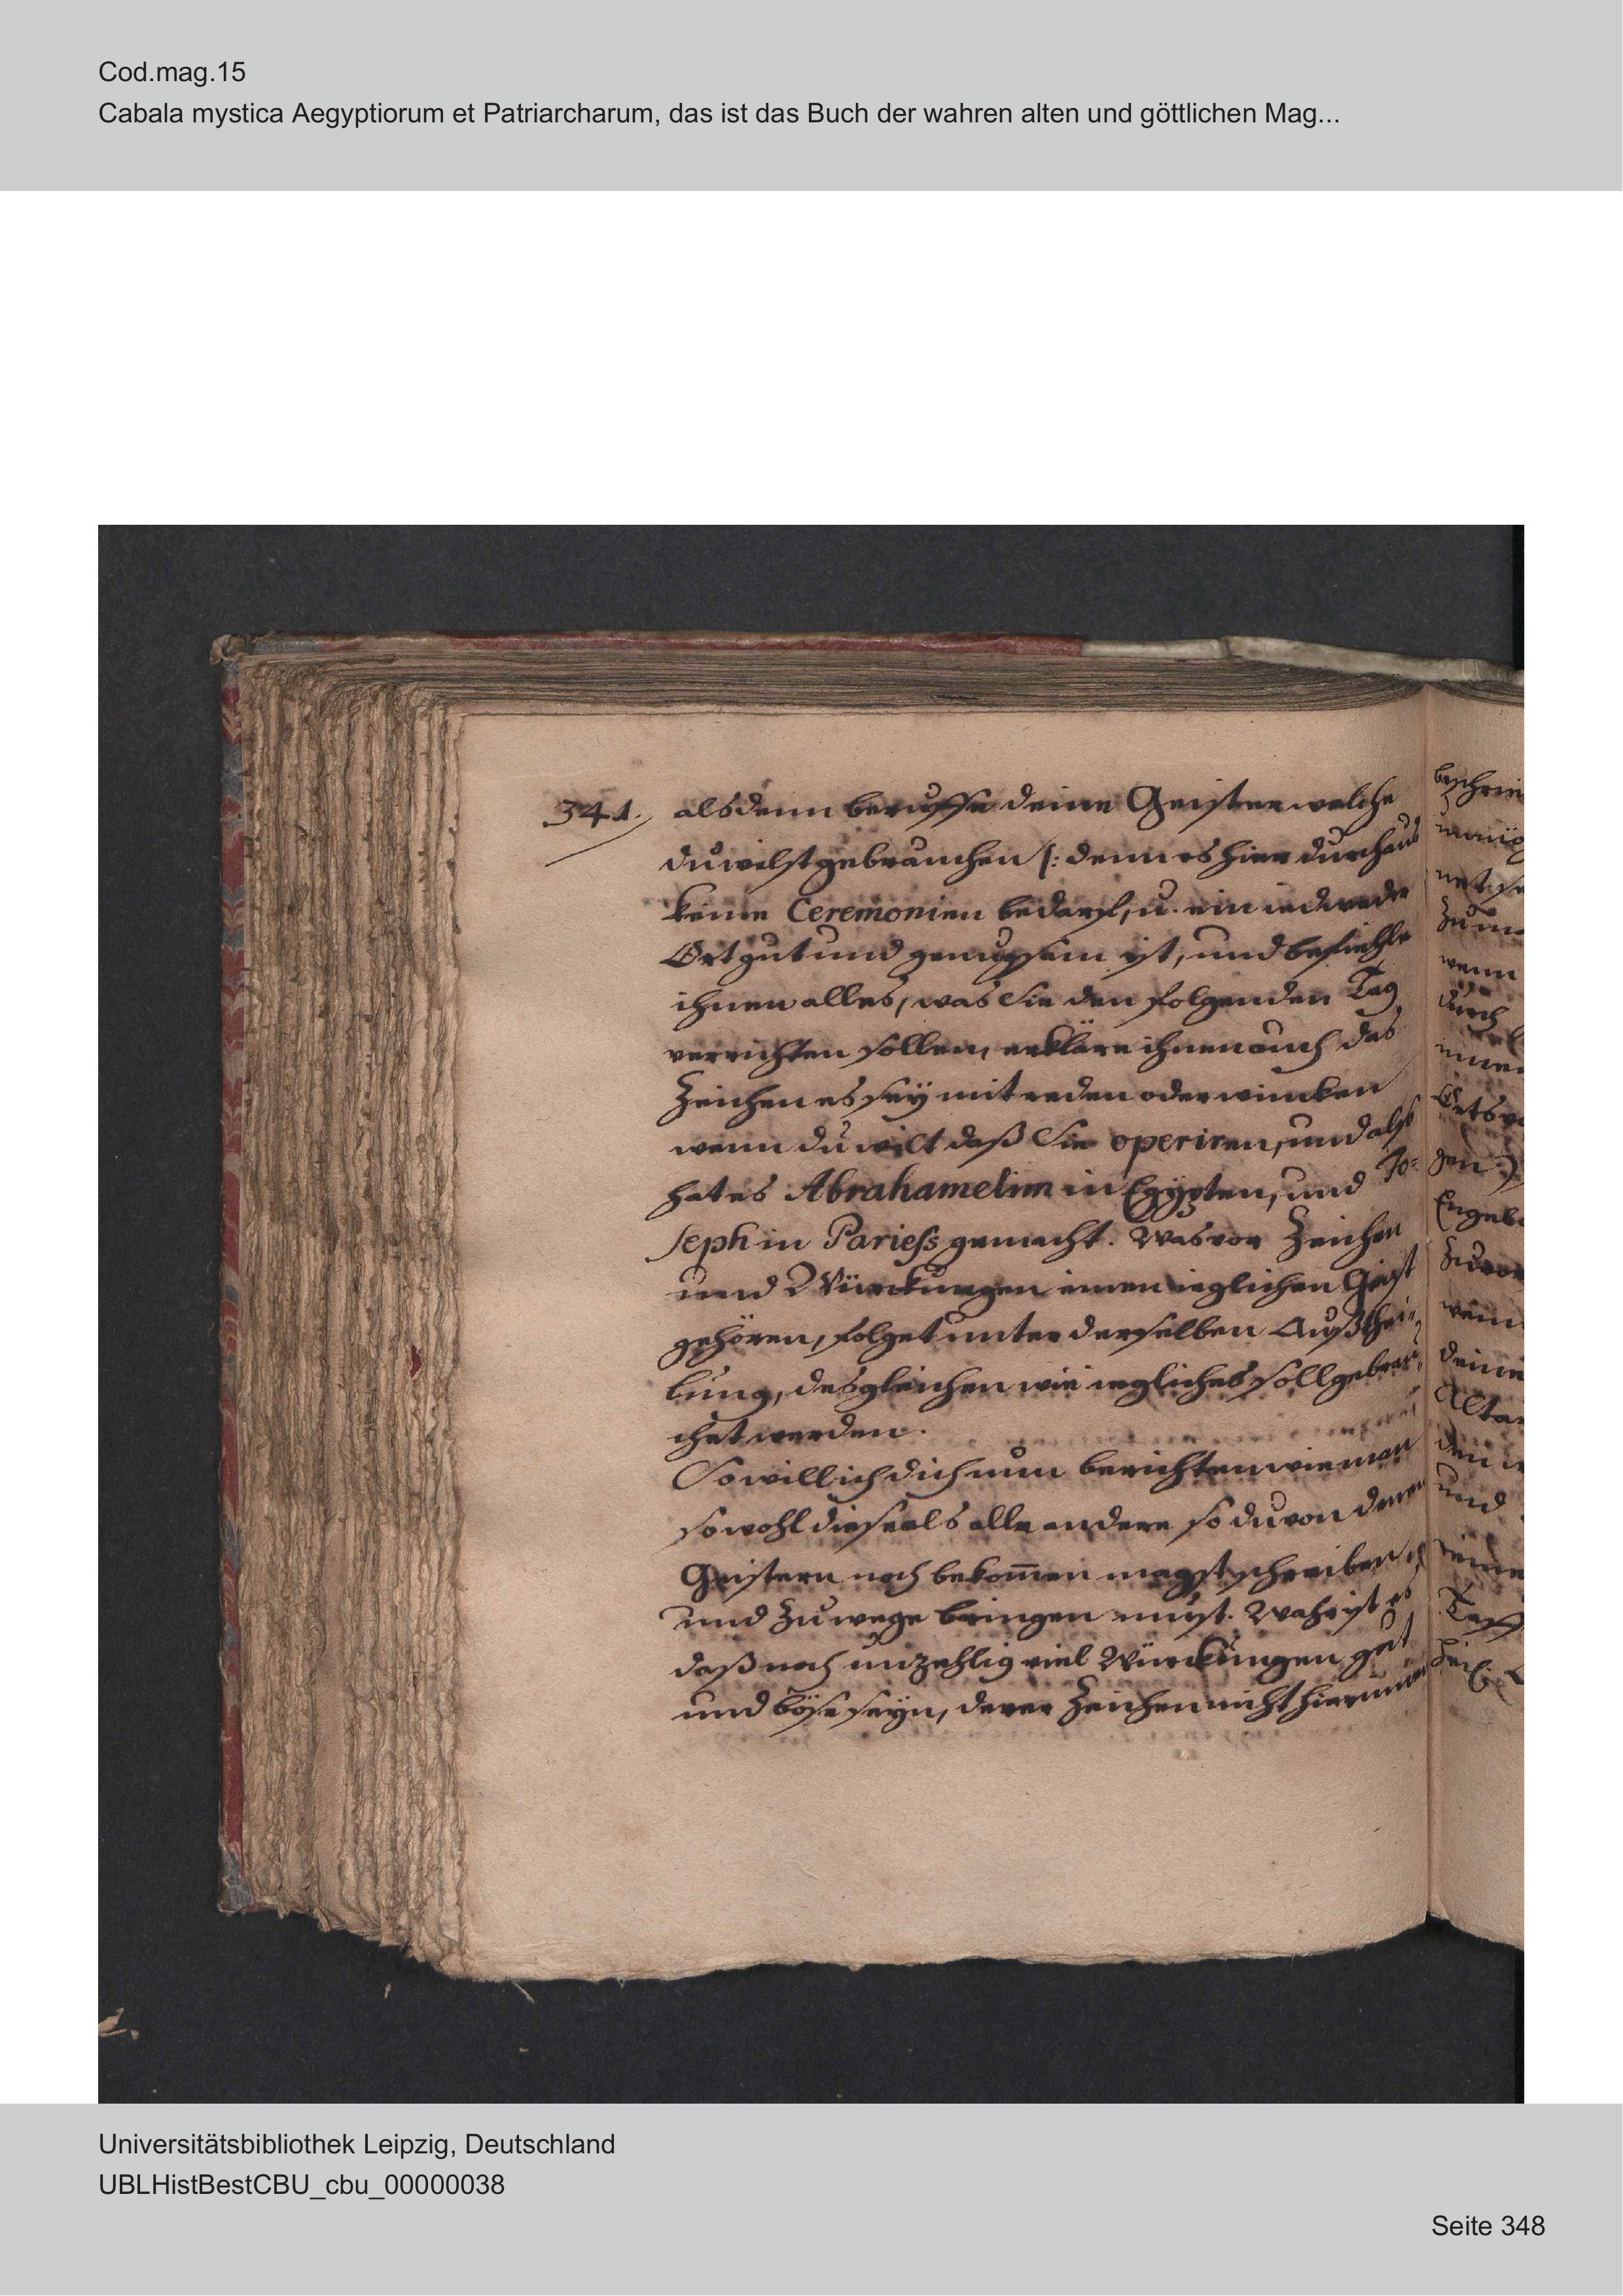 Cod.mag.15
Cabala mystica Aegyptiorum et Patriarcharum, das ist das Buch der wahren alten und göttlichen Mag...
341. alsdenn beruffe deine Geister welche
du wilst gebrauchen /: denn es hier durchaus
keine Ceremonien bedarf, u. ein iedweder
Ort gut und genugsam ist, und befiehle
ihnen alles, was Sie den folgenden Tag
verrichten sollen, erkläre ihnen auch das
Zeichen es sey mit reden oder wincken
wenn du wilt daß Sie operiren, und also
hat es Abrahamelim in Egypten, und Jo-
seph in Pariess gemacht. Was vor Zeichen
und Würckungen einen ieglichen Geist
gehören, folget unter derselben Außthei-
lung, desgleichen wie iegliches soll gebrau-
chet werden.
So will ich dich nun berichten wie man
sowohl diese als alle andere so du von denen
Geistern noch bekom̅en magst schreiben
und zu wege bringen must. Wahr ist es
daß noch unzehlig viel Würckungen gut
und böse seyn, derer Zeichen nicht hierinnen
Universitätsbibliothek Leipzig, Deutschland
UBLHistBestCBU_cbu_00000038
Seite 348